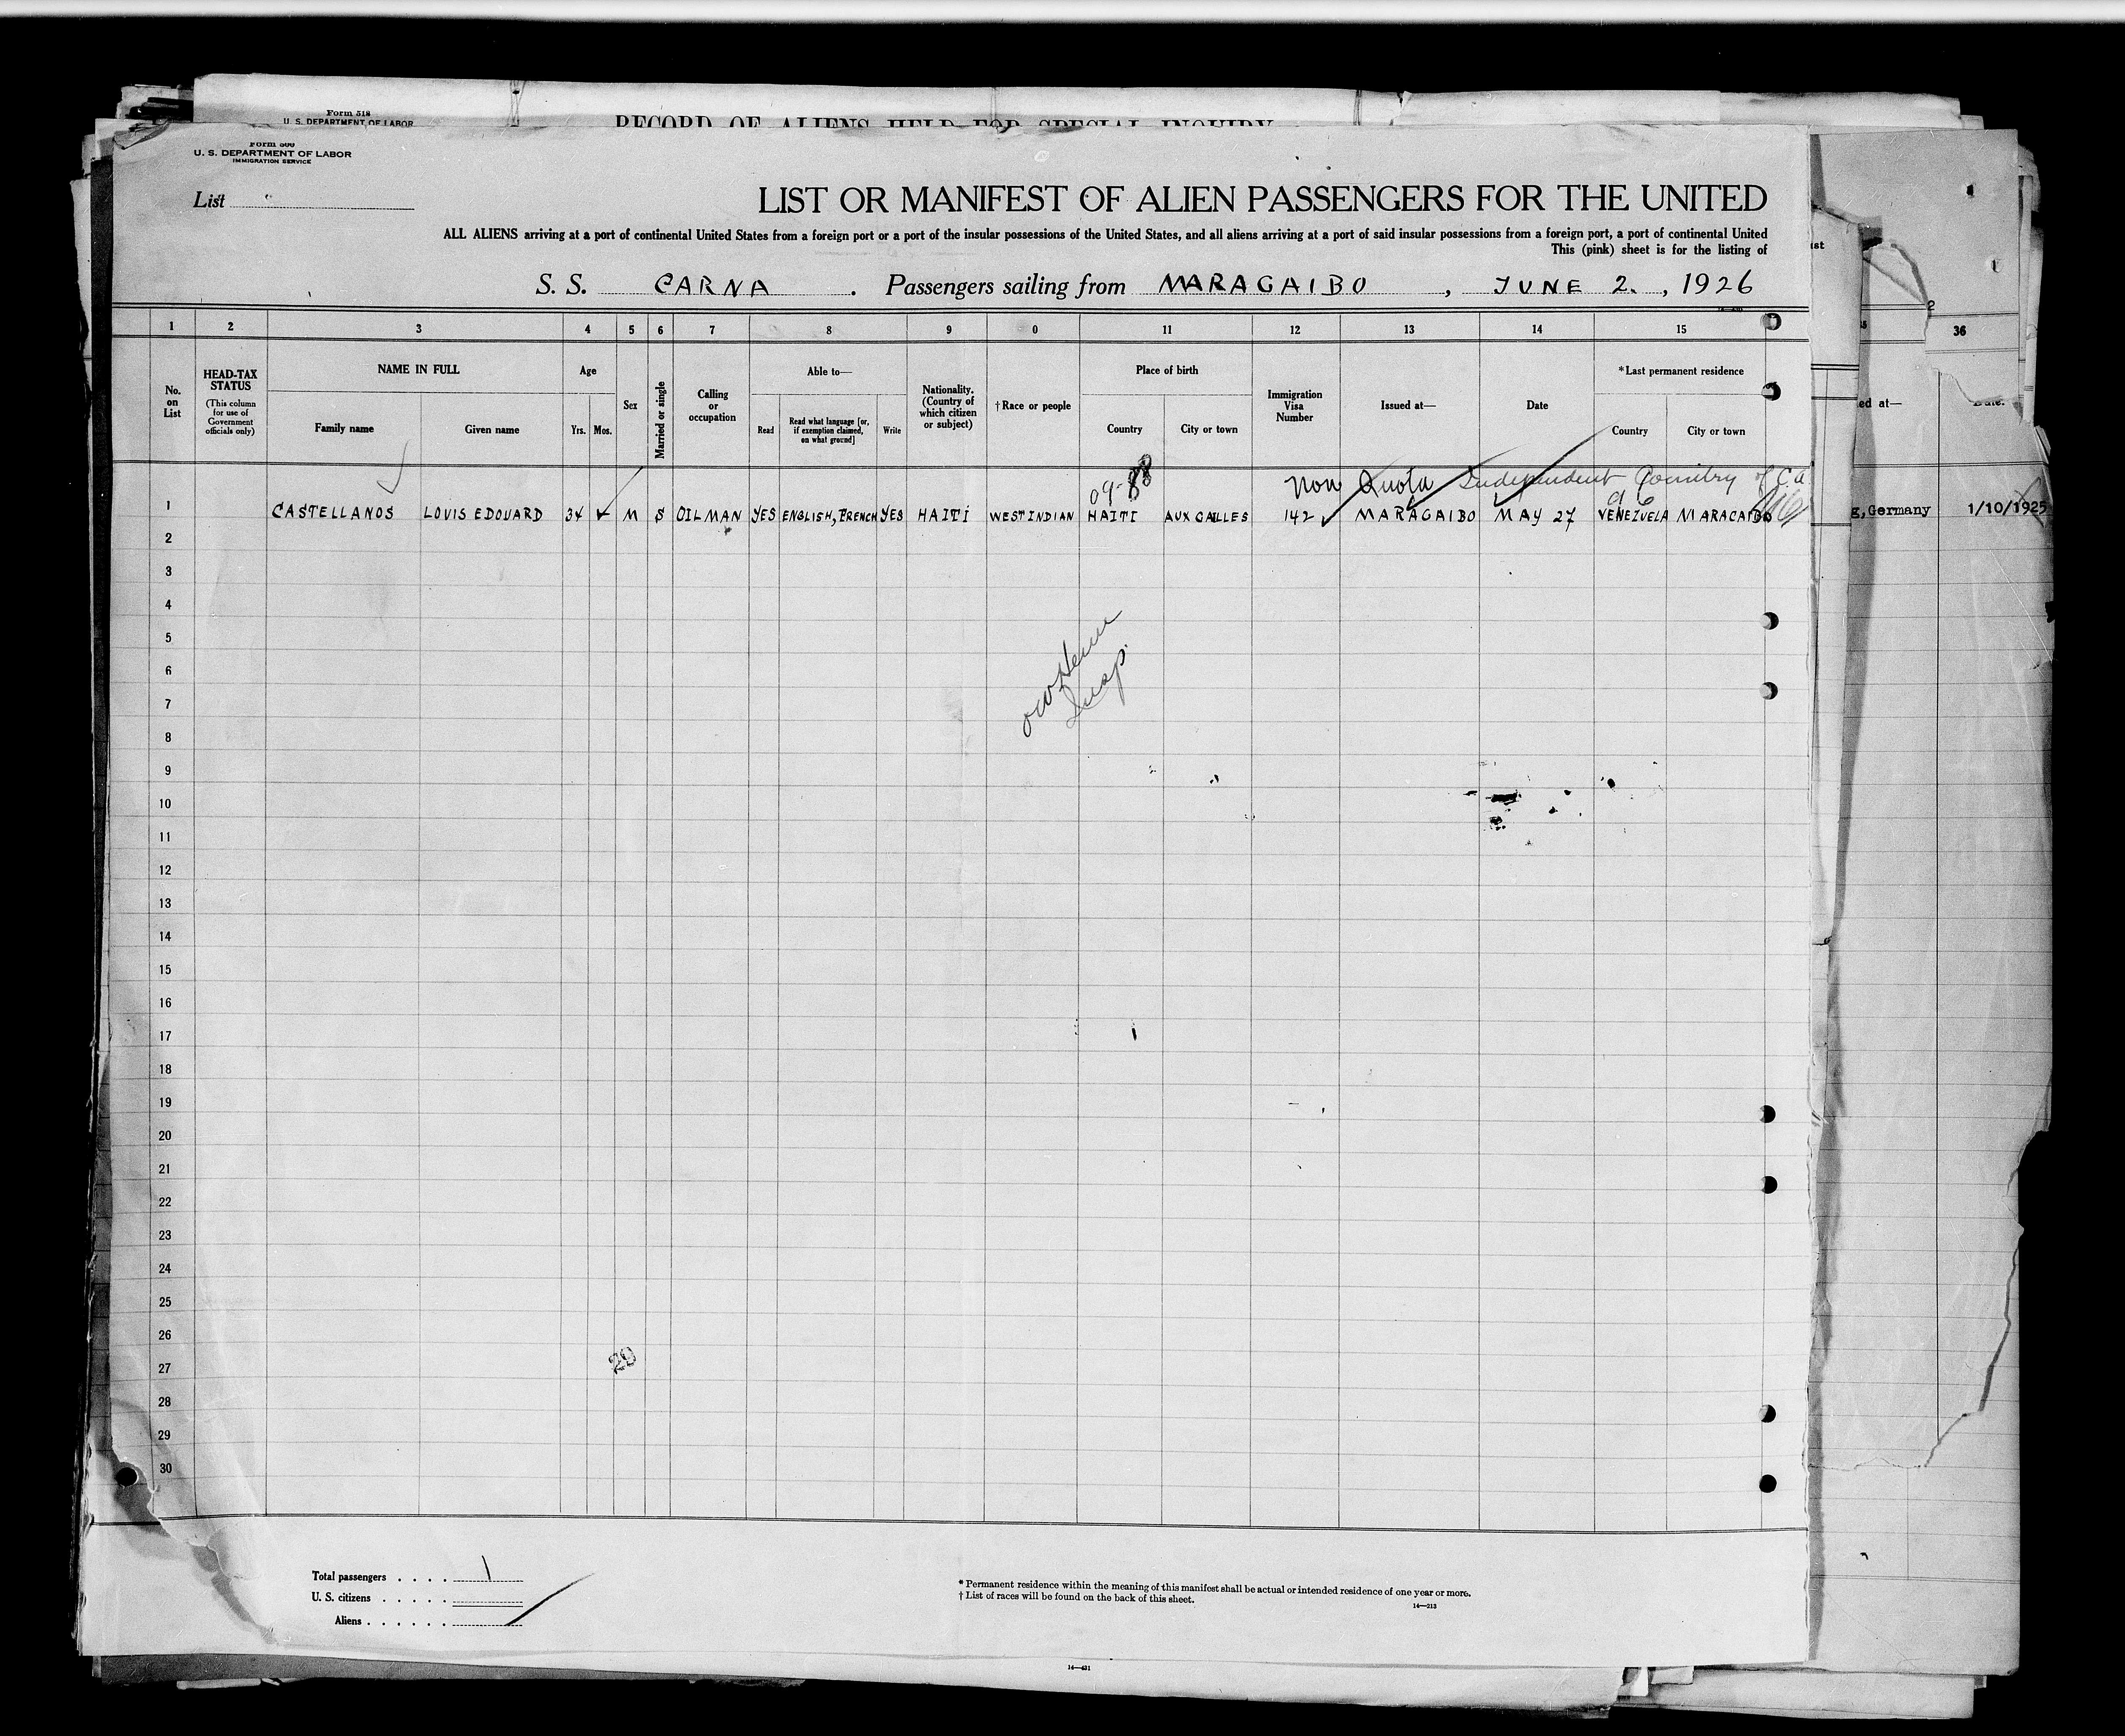 Form 518
U. S. DEPARTMENT OF LABOR
RECORD OF ALIENS HELD FOR SPECIAL INQUIRY
Form 500
U. S. DEPARTMENT OF LABOR
IMMIGRATION SERVICE
List
LIST OR MANIFEST OF ALIEN PASSENGERS FOR THE UNITED
ALL ALIENS arriving at a port of continental United States from a foreign port or a port of the insular possessions of the United States, and all aliens arriving at a port of said insular possessions from a foreign port, a port of continental United
This (pink) sheet is for the listing of
S. S. CARNA . Passengers sailing from MARACAIBO , JUNE 2. , 1926
1 2 3 4 5 6 7 8 9 0 11 12 13 14 15
36
No. on List
HEAD-TAX STATUS
(This column for use of Government officials only)
NAME IN FULL
Family name
Given name
Age
Yrs. Mos.
Sex
Married or single
Calling or occupation
Able to—
Read
Read what language [or, if exemption claimed, on what ground]
Write
Nationality. (Country of which citizen or subject)
† Race or people
Place of birth
Country
City or town
Immigration Visa Number
Issued at—
Date
*Last permanent residence
Country
City or town
ed at—
Date.
09-88
Non Quota Independent Country of C.A
1 CASTELLANOS LOUIS EDOUARD 34 M S OILMAN YES ENGLISH, FRENCH YES HAITI WEST INDIAN HAITI AUX CAILLES 142 MARACAIBO MAY 27 VENEZUELA MARACAIBO
g, Germany 1/10/1925
2
3
4
5
6
Insp.
7
8
9
10
11
12
13
14
15
16
17
18
19
20
21
22
23
24
25
26
27
29
28
29
30
Total passengers . . . . 1
U. S. citizens . . . . .
Aliens . . . . . .
* Permanent residence within the meaning of this manifest shall be actual or intended residence of one year or more.
† List of races will be found on the back of this sheet.
14—213
14—431